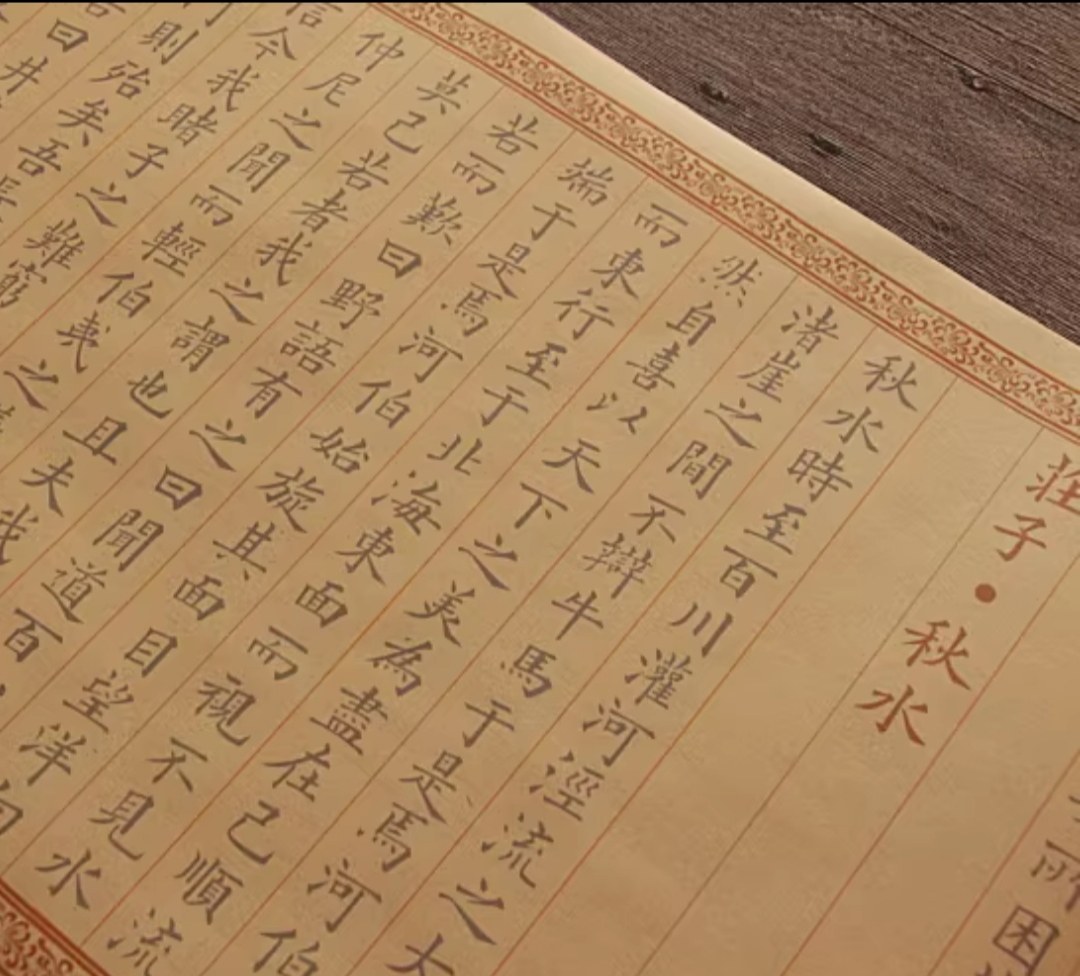 所困
莊子·秋水
秋水時至百川灌河涇流之大
渚崖之間不辯牛馬于是焉河伯
然自喜以天下之美為盡在己順流
而東行至于北海東面而視不見水
端于是焉河伯始旋其面目望洋向
若而歎曰野語有之曰聞道百
莫己若者我之謂也且夫我
仲尼之聞而輕伯夷之
信今我睹子之難窮
則殆矣吾長
曰井